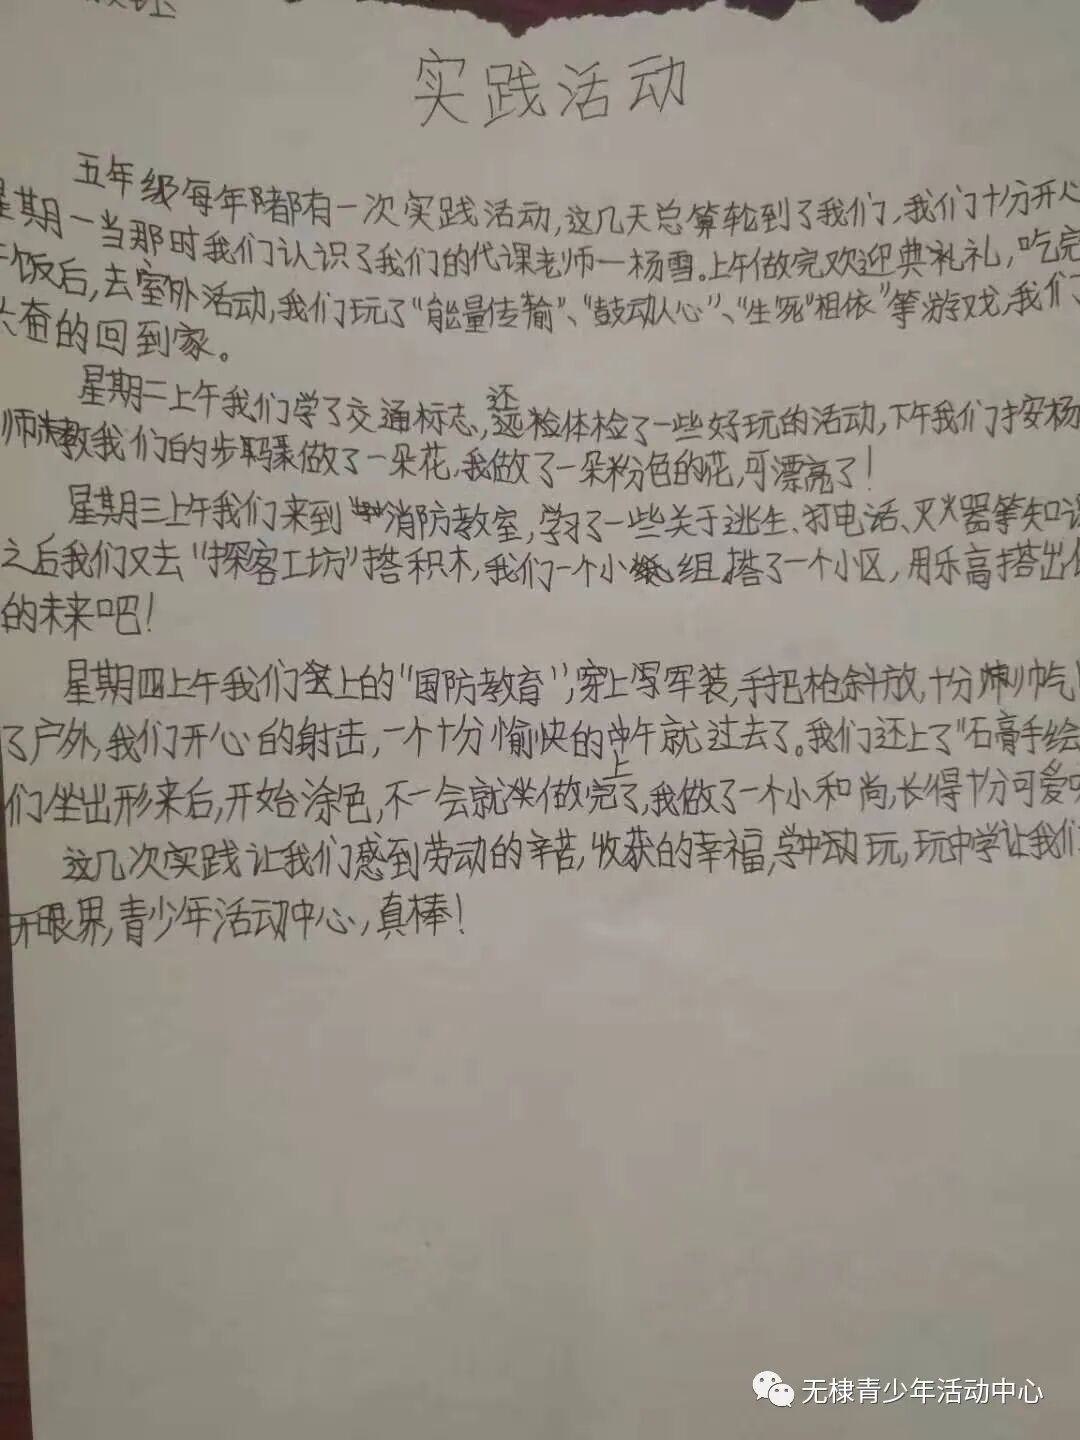 实践活动
五年级每年都有一次实践活动,这几天总算轮到了我们,我们十分开心
星期一当那时我们认识了我们的代课老师一杨雪.上午做完欢迎典礼礼,吃完
饭后,去室外活动,我们玩了“能量传输”、“鼓动人心”、“生死相依”等游戏,我们
奋的回到家。
星期二上午我们学了交通标志,还检体检了一些好玩的活动,下午我们按杨
师教我们的步骤做了一朵花,我做了一朵粉色的花,可漂亮了!
星期三上午我们来到消防教室,学习了一些关于逃生、打电话、灭火器等知识
之后我们又去“探客工坊”搭积木,我们一个小组,搭了一个小区,用乐高搭出
的未来吧!
星期四上午我们上的“国防教育”,穿上军装,手把枪斜放,十分帅气
了户外,我们开心的射击,一个十分愉快的上午就过去了。我们还上了“石膏手绘
们坐出形来后,开始涂色,不一会就做完了,我做了一个小和尚,长得十分可爱
这几次实践让我们感到劳动的辛苦,收获的幸福,学中动玩,玩中学让我们
开眼界,青少年活动中心,真棒!
无棣青少年活动中心